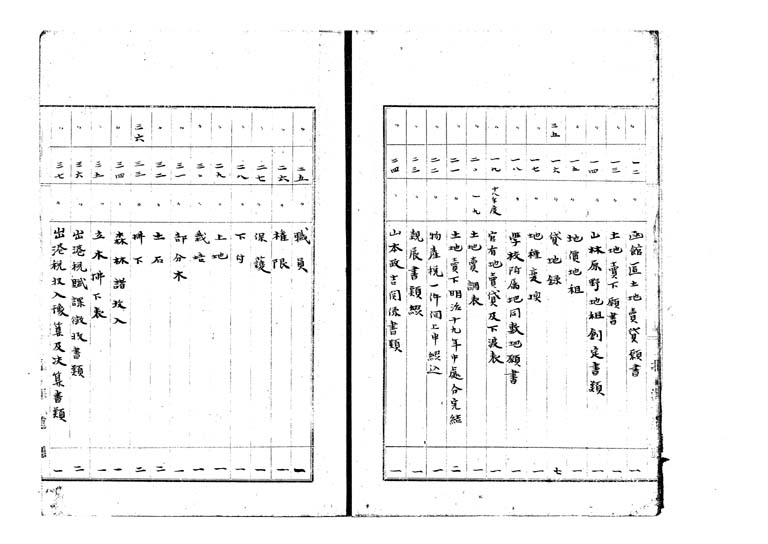 〃 一二 〃 函館區土地賣貸願書 一
〃 一三 〃 土地賣下願書 一
〃 一四 〃 山林原野地租創定書類 一
〃 一五 〃 地價地租 一
三五 一六 〃 貸地録 七
〃 一七 〃 地種変換 一
〃 一八 〃 學校附属地同敷地願書 一
〃 一九 十八年度 官有地賣貸及下渡表 一
〃 二〇 一九 土地賣調表 一
〃 二一 〃 土地賣下明治十九年中處分完結 二
〃 二二 〃 物産税一件伺上申綴込 一
〃 二三 〃 親展書類綴 一
〃 二四 〃 山本政吉関係書類 一
〃 二五 〃 職員 一
〃 二六 〃 権限 一
〃 二七 〃 保護 一
〃 二八 〃 下付 一
〃 二九 〃 上地 一
〃 三〇 〃 栽培 一
〃 三一 〃 部分木 一
〃 三二 〃 土石 二
三六 三三 〃 拂下 二
〃 三四 〃 森林諸收入 一
〃 三五 〃 立木拂下表 一
〃 三六 〃 出港税賦課徴收書類 二
〃 三七 〃 出港税收入豫算及决算書類 一